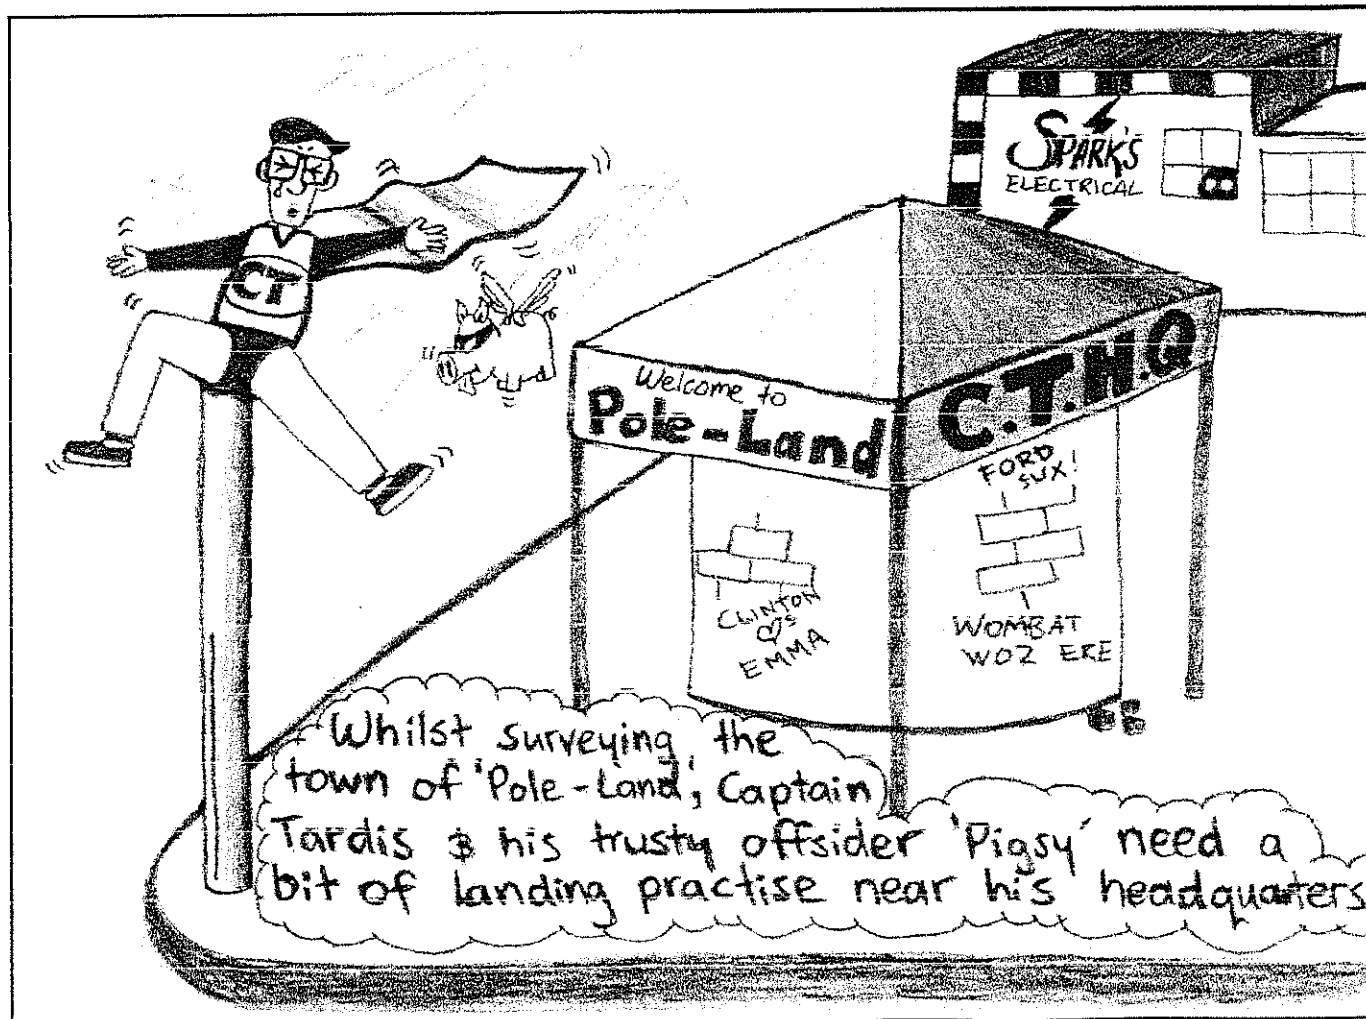 SPARK'S
ELECTRICAL
CT
Welcome to
Pole-Land
C.T.H.Q
FORD
SUX!
CLINTON
♡'S
EMMA
WOMBAT
WOZ ERE
Whilst surveying the
town of 'Pole-Land', Captain
Tardis & his trusty offsider 'Pigsy' need a
bit of landing practise near his headquarters